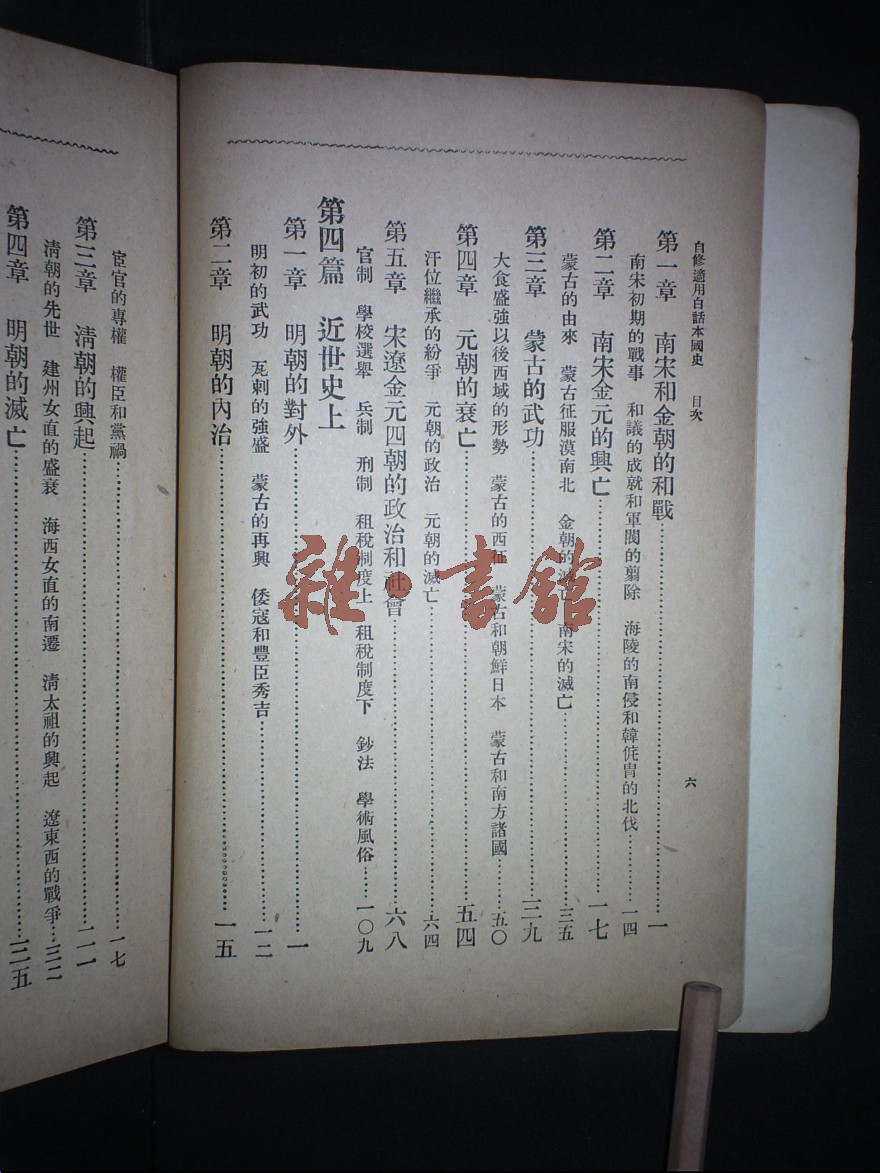 自修適用白話本國史 目次 六
第一章 南宋和金朝的和戰……一
南宋初期的戰事 和議的成就和軍閥的翦除 海陵的南侵和韓侂胄的北伐……一四
第二章 南宋金元的興亡……一七
蒙古的由來 蒙古征服漠南北 金朝的滅亡 南宋的滅亡……三五
第三章 蒙古的武功……三九
大食盛強以後西域的形勢 蒙古的西征 蒙古和朝鮮日本 蒙古和南方諸國……五〇
第四章 元朝的衰亡……五四
汗位繼承的紛爭 元朝的政治 元朝的滅亡……六四
第五章 宋遼金元四朝的政治和社會……六八
官制 學校選舉 兵制 刑制 租稅制度上 租稅制度下 鈔法 學術風俗……一〇九
第四篇 近世史上
第一章 明朝的對外……一
明初的武功 瓦剌的強盛 蒙古的再興 倭寇和豐臣秀吉……一二
第二章 明朝的內治……一五
宦官的專權 權臣和黨禍……一七
第三章 清朝的興起……二一
清朝的先世 建州女直的盛衰 海西女直的南遷 清太祖的興起 遼東西的戰爭……三二
第四章 明朝的滅亡……三五
雜·書館